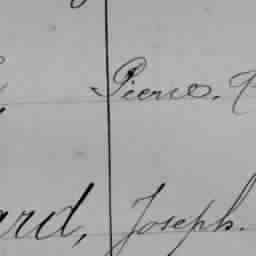 Pierre.
ard, Joseph.